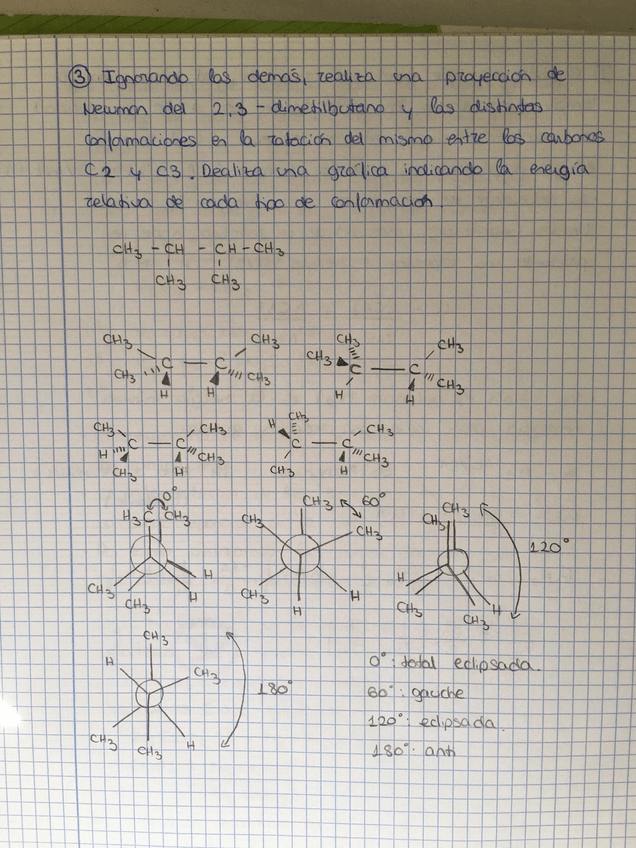 ③ Ignorando los demás, realiza una proyección de
Newman del 2,3-dimetilbutano y las distintas
conformaciones en la rotación del mismo entre los carbonos
C2 y C3. Dealiza una gráfica indicando la energía
relativa de cada tipo de conformación.
CH3 - CH - CH - CH3
CH3 CH3
CH3 CH3
C — C
CH3 CH3
H H
CH3 CH3
CH3 C — C
CH3
H H
CH3 CH3
C — C
H CH3
CH3 H
H CH3 CH3
C — C
CH3 H CH3
0°
H3C CH3
H
CH3 H
CH3
CH3 60°
CH3 CH3
CH3 H
H
CH3
CH3
120°
H
CH3 H
CH3
CH3
H
CH3
180°
CH3 CH3 H
0°: total eclipsada.
60°: gauche
120°: eclipsada.
180°: anti